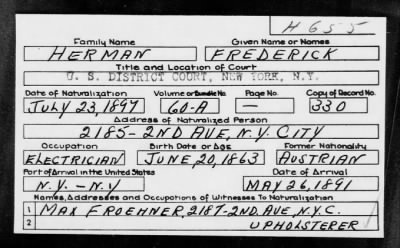 H 655
Family Name Given Name or Names
HERMAN FREDERICK
Title and Location of Court
U. S. DISTRICT COURT, NEW YORK, N.Y.
Date of Naturalization Volume or Bundle No. Page No. Copy of Record No.
JULY 23, 1897 60-A — 330
Address of Naturalized Person
2185-2ND AVE, N.Y. CITY
Occupation Birth Date or Age Former Nationality
ELECTRICIAN JUNE, 20, 1863 AUSTRIAN
Port of Arrival in the United States Date of Arrival
N.Y. - N.Y MAY 26, 1891
Names, Addresses and Occupations of Witnesses To Naturalization
1 MAX FROEHNER, 2187-2ND AVE, N.Y.C.
2 UPHOLSTERER